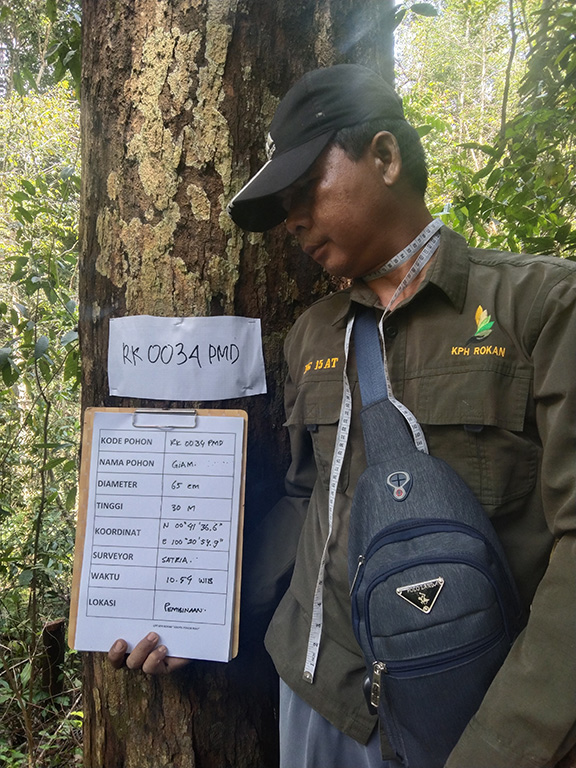 RK 0034 PMD
KODE POHON RK 0034 PMD
NAMA POHON GIAM
DIAMETER 65 cm
TINGGI 30 M
KOORDINAT N 00°41'36.6"
E 100°20'54.9"
SURVEYOR SATRIA
WAKTU 10.54 WIB
LOKASI PEMBINAAN
15 AT
KPH ROKAN
POLO LAND